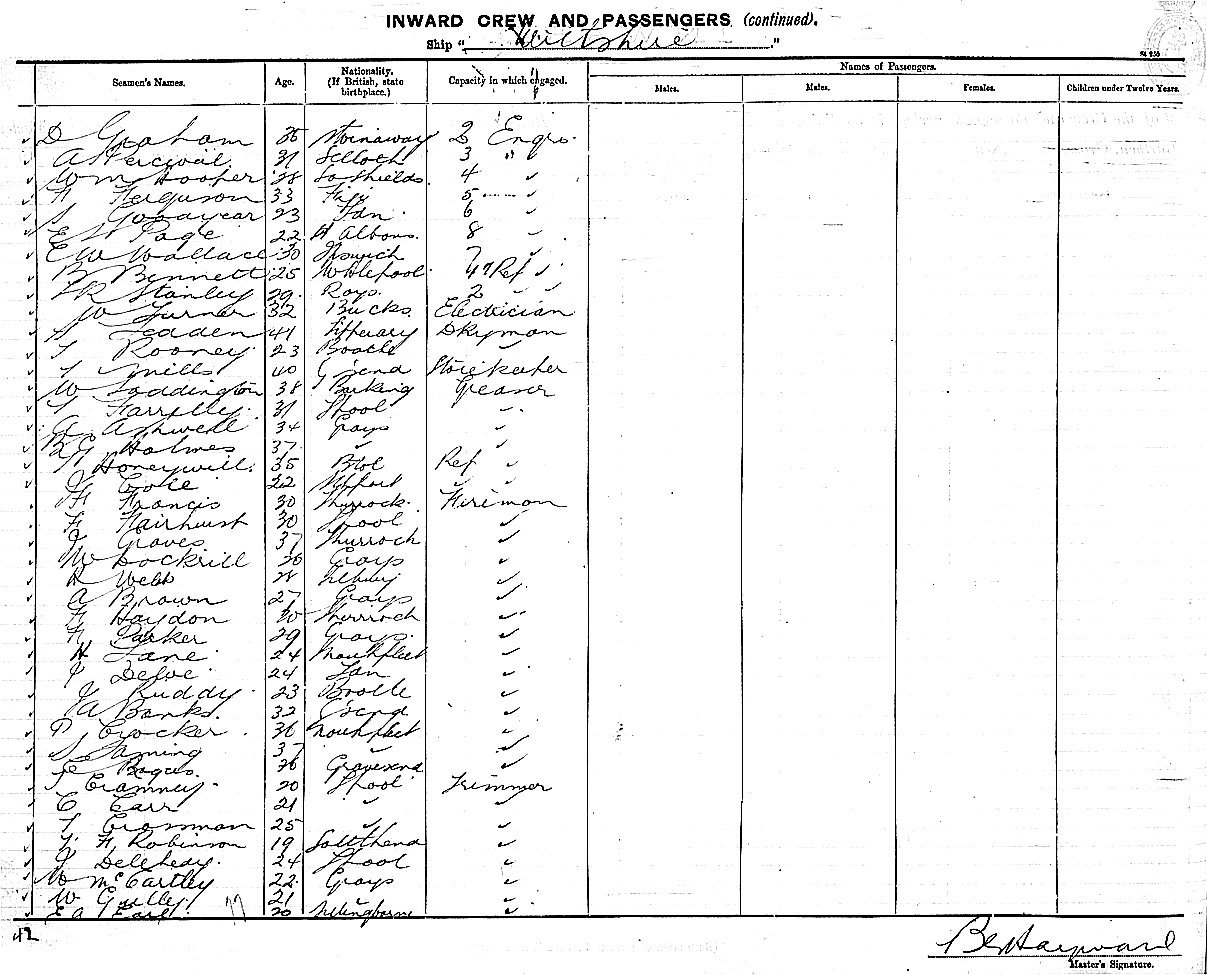 INWARD CREW AND PASSENGERS (continued).
Ship " Wiltshire "
Seamen's Names. Age. Nationality. (If British, state birthplace.) Capacity in which engaged. Names of Passengers.
Males. Males. Females. Children under Twelve Years.
D Graham 35 Stornaway 2 Engr.
A Percival 31 3 "
Wm Hooper 28 So Shields 4 ✓
Ferguson 33 Fiji 5 ✓
Goodyear 23 Ldn 6 ✓
E W Page 22 St Albans 8 ✓
E W Wallace 30 Ipswich 7 ✓
B Bennett 25 4th Ref ✓
Stanley 29 2 ✓ ✓
W Turner 32 Bucks Electrician
41 Tipperary Dkyman
T Rooney 23 Bootle ✓
T Mills 40 G'send Storekeeper
W Saddington 38 Barking Greaser
Farrelly 31 L'pool ✓
Ashwell 34 Grays ✓
Holmes 37 ✓ ✓
Honeywill 35 Btol Ref ✓
J Cole 22 ✓ ✓
H Francis 30 Thurrock Fireman
F Fairhurst 30 L'pool ✓
J Graves 37 Thurroch ✓
W Lockrill 26 Grays ✓
R Webb ✓
A Brown 27 Grays ✓
H Haydon 30 Thurroch ✓
Parker 29 Grays ✓
H Lane 24 Northfleet ✓
24 Ldn ✓
J Ruddy 23 Bootle ✓
A Banks 32 G'send ✓
Crocker 36 Northfleet ✓
37 ✓ ✓
26 Gravesend ✓
Cramney 20 L'pool Trimmer
C Carr 21 ✓ ✓
T Crossman 25 ✓ ✓
F. Robinson 19 Southend ✓
J Delehedy 24 L'pool ✓
W McCartley 22 Grays ✓
W Gulley 21 ✓ ✓
E A Earl 20 ✓
42
Master's Signature.